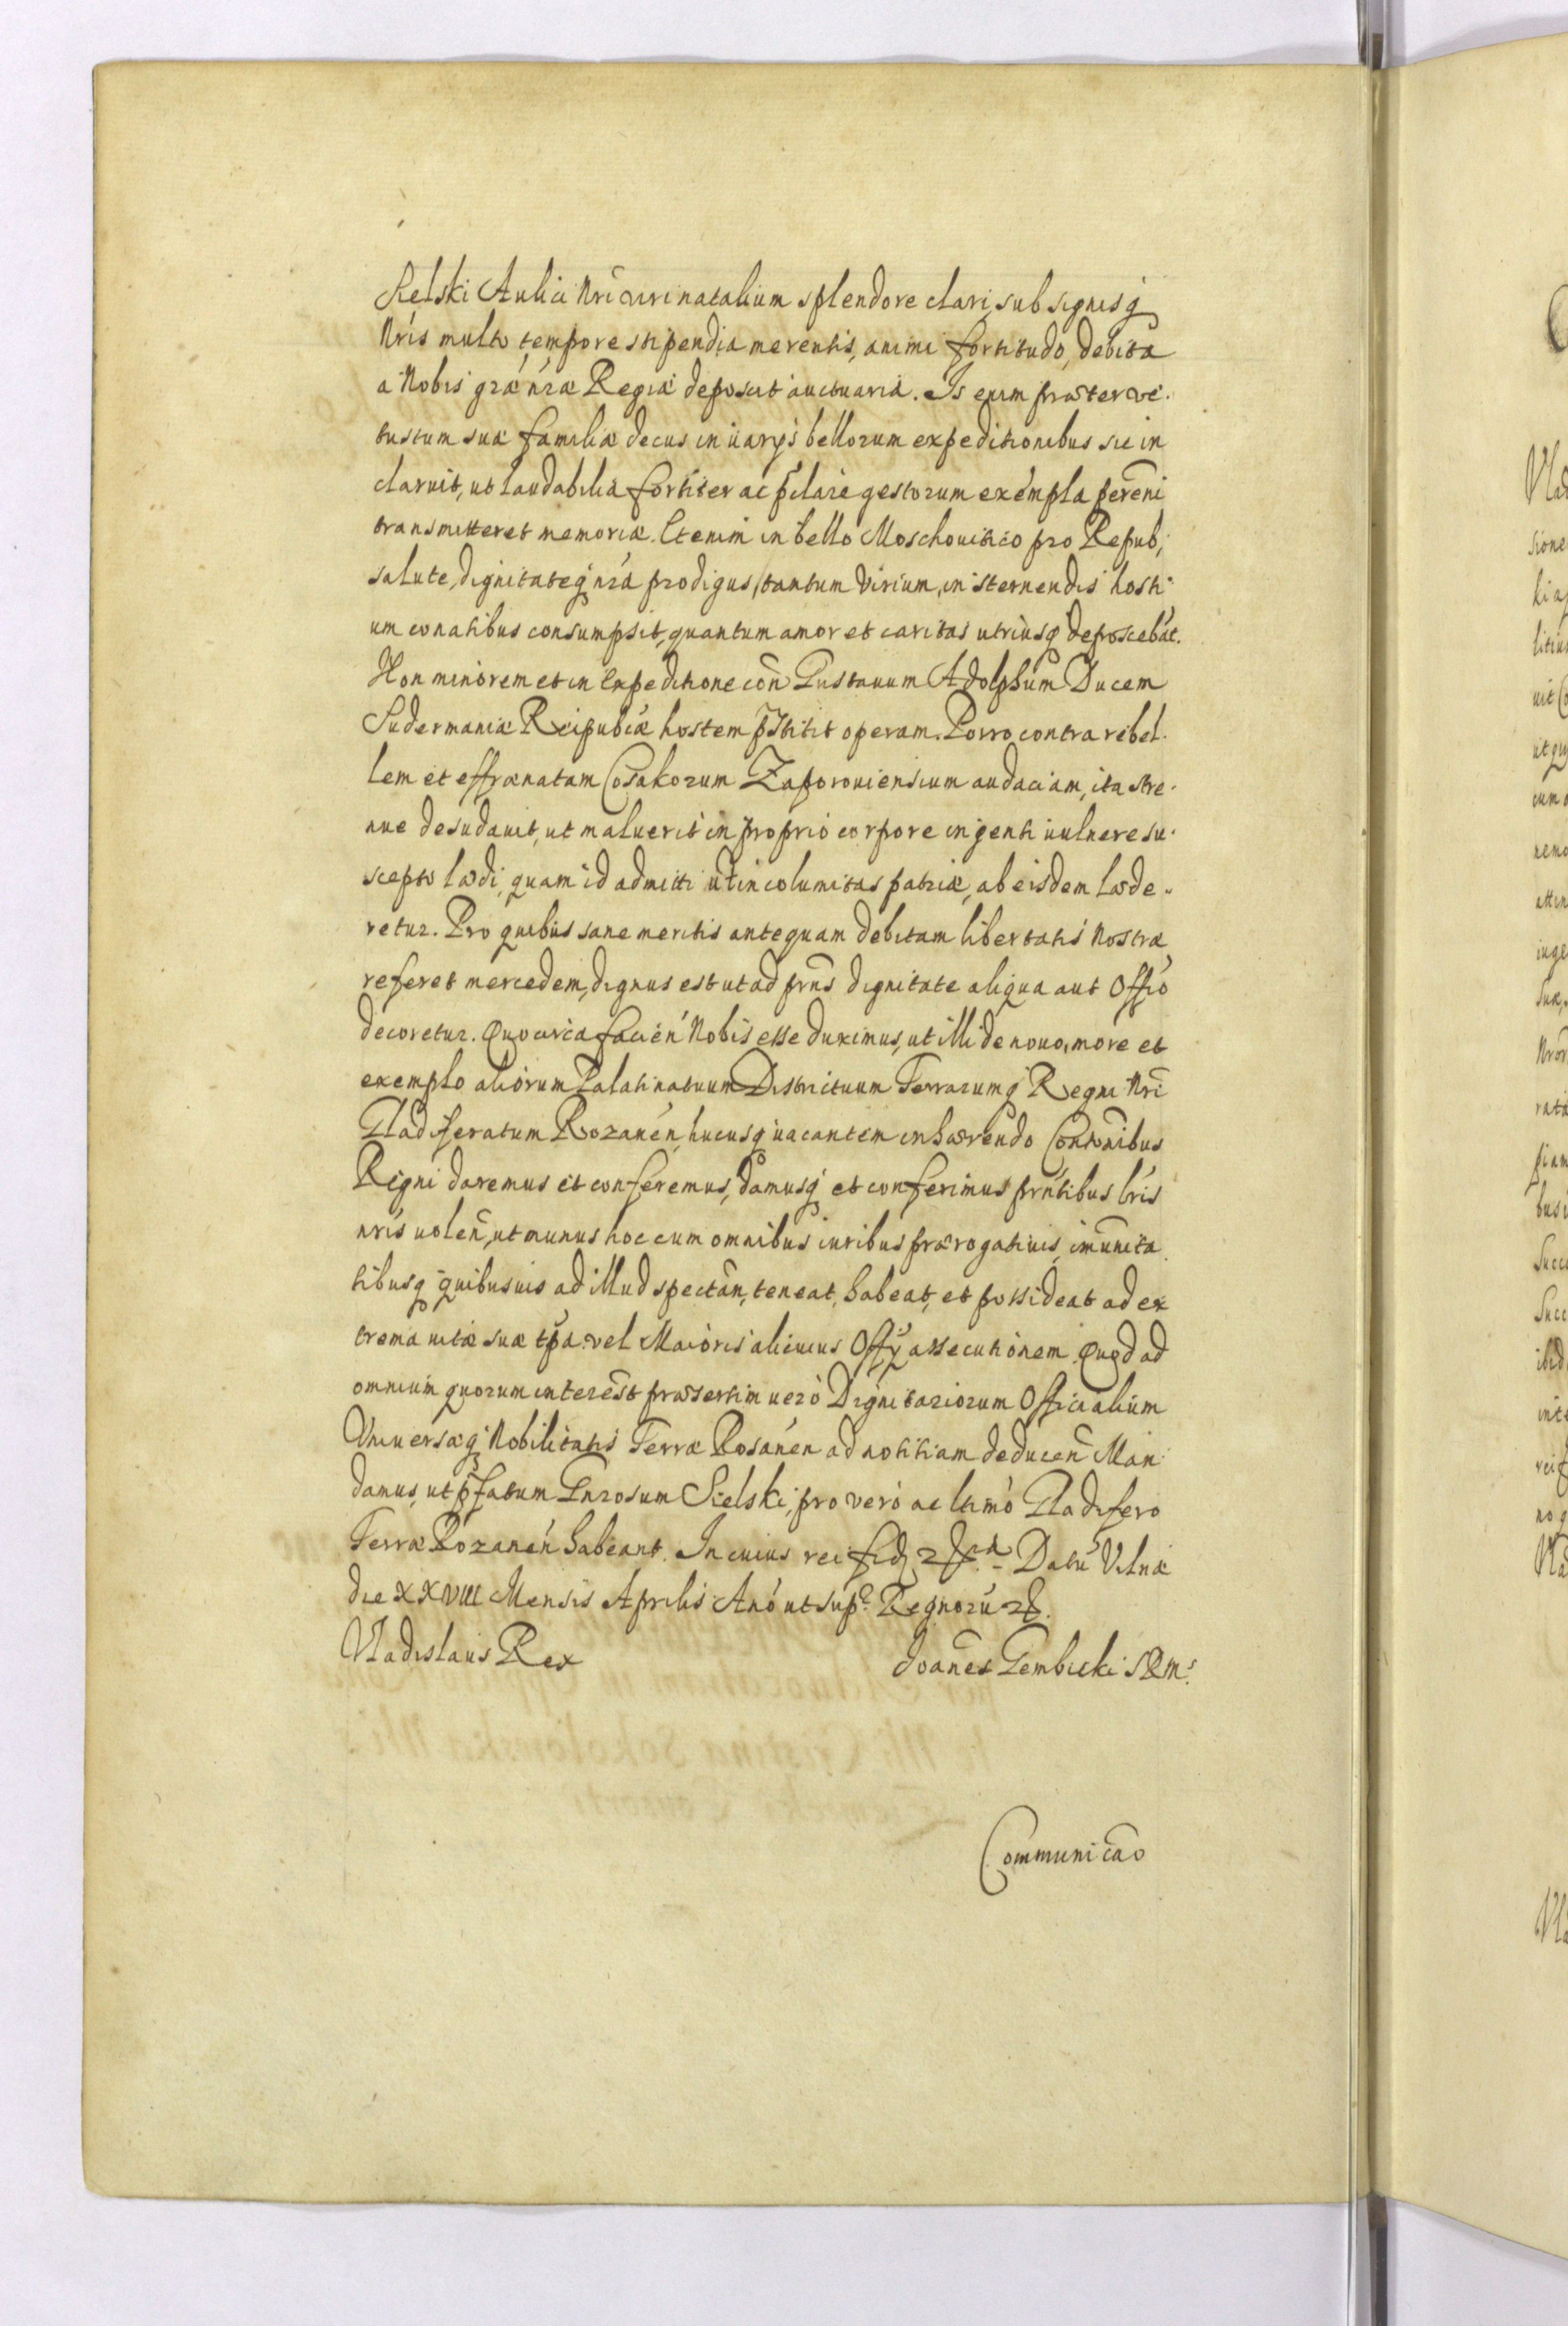 Sielski Aulici Nri viri natalium splendore clari, sub signisq
Nris multo tempore stipendia merentis, animi fortitudo, debita
a Nobis græ nræ Regiæ deposcit auctuaria. Is enim præter ve-
tustum suæ familiæ decus in varijs bellorum expeditionibus sic in
claruit, ut laudabilia fortiter ac pclare gestorum exempla perenni
transmitteret memoriæ. Etenim in bello Moschovitico pro Repub;
salute, dignitateq nra prodigus, tantum virium, in sternendis hosti-
um conatibus consumpsit, quantum amor et caritas utriusq deposcebat.
Non minorem et in Expeditione con Gustavum Adolphum Ducem
Sudermaniæ Reipubcæ hostem pstitit operam. Porro contra rebel-
lem et effrænatam Cosakorum Zaporoviensium audaciam, ita stre-
nue desudavit, ut maluerit in proprio corpore ingenti vulnere su-
scepto lædi, quam id admitti ut incolumitas patriæ, ab eisdem læde-
retur. Pro quibus sane meritis antequam debitam libertatis Nostræ
referet mercedem, dignus est ut ad prns dignitate aliqua aut Offio
decoretur. Quocirca facien Nobis esse duximus, ut illi de novo, more et
exemplo aliorum Palatinatuum Districtuum Terrarumq Regni Nri
Gladiferatum Rozanen, hucusq vacantem inhærendo Contonibus
Regni daremus et conferemus, damusq et conferimus prntibus lris
nris volen, ut munus hoc cum omnibus iuribus prærogativis, imunita
tibusq quibusvis ad illud spectan, teneat, habeat, et possideat ad ex
trema vitæ suæ tpa vel Maioris alicuius Offy assecutionem. Quod ad
omnium quorum interest præsertim vero Dignitariorum Officialium
Universæq Nobilitatis Terræ Rosanen ad notitiam deducen Man-
damus, ut pfatum Gnrosum Sielski, pro vero ac ltimo Gladifero
Terræ Rozanen habeant. In cuius rei fid Datu Vilnæ
die XXVIII Mensis Aprilis Ano ut sup Regnoru
Vladislaus Rex Joanes Gembicki SRM
Communicao